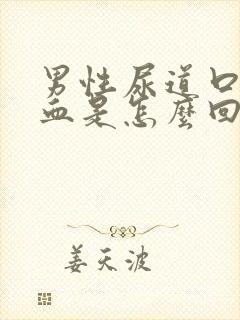 男性尿道口
血是怎麼回
姜天波